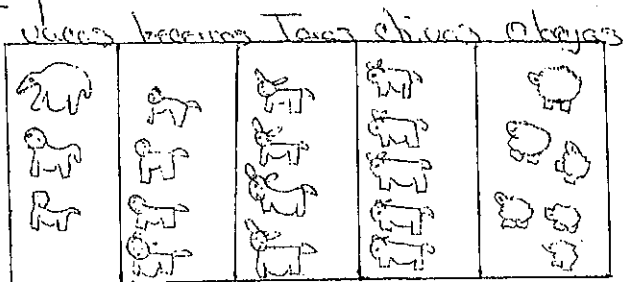 vacas becerros Toros chivas obejas